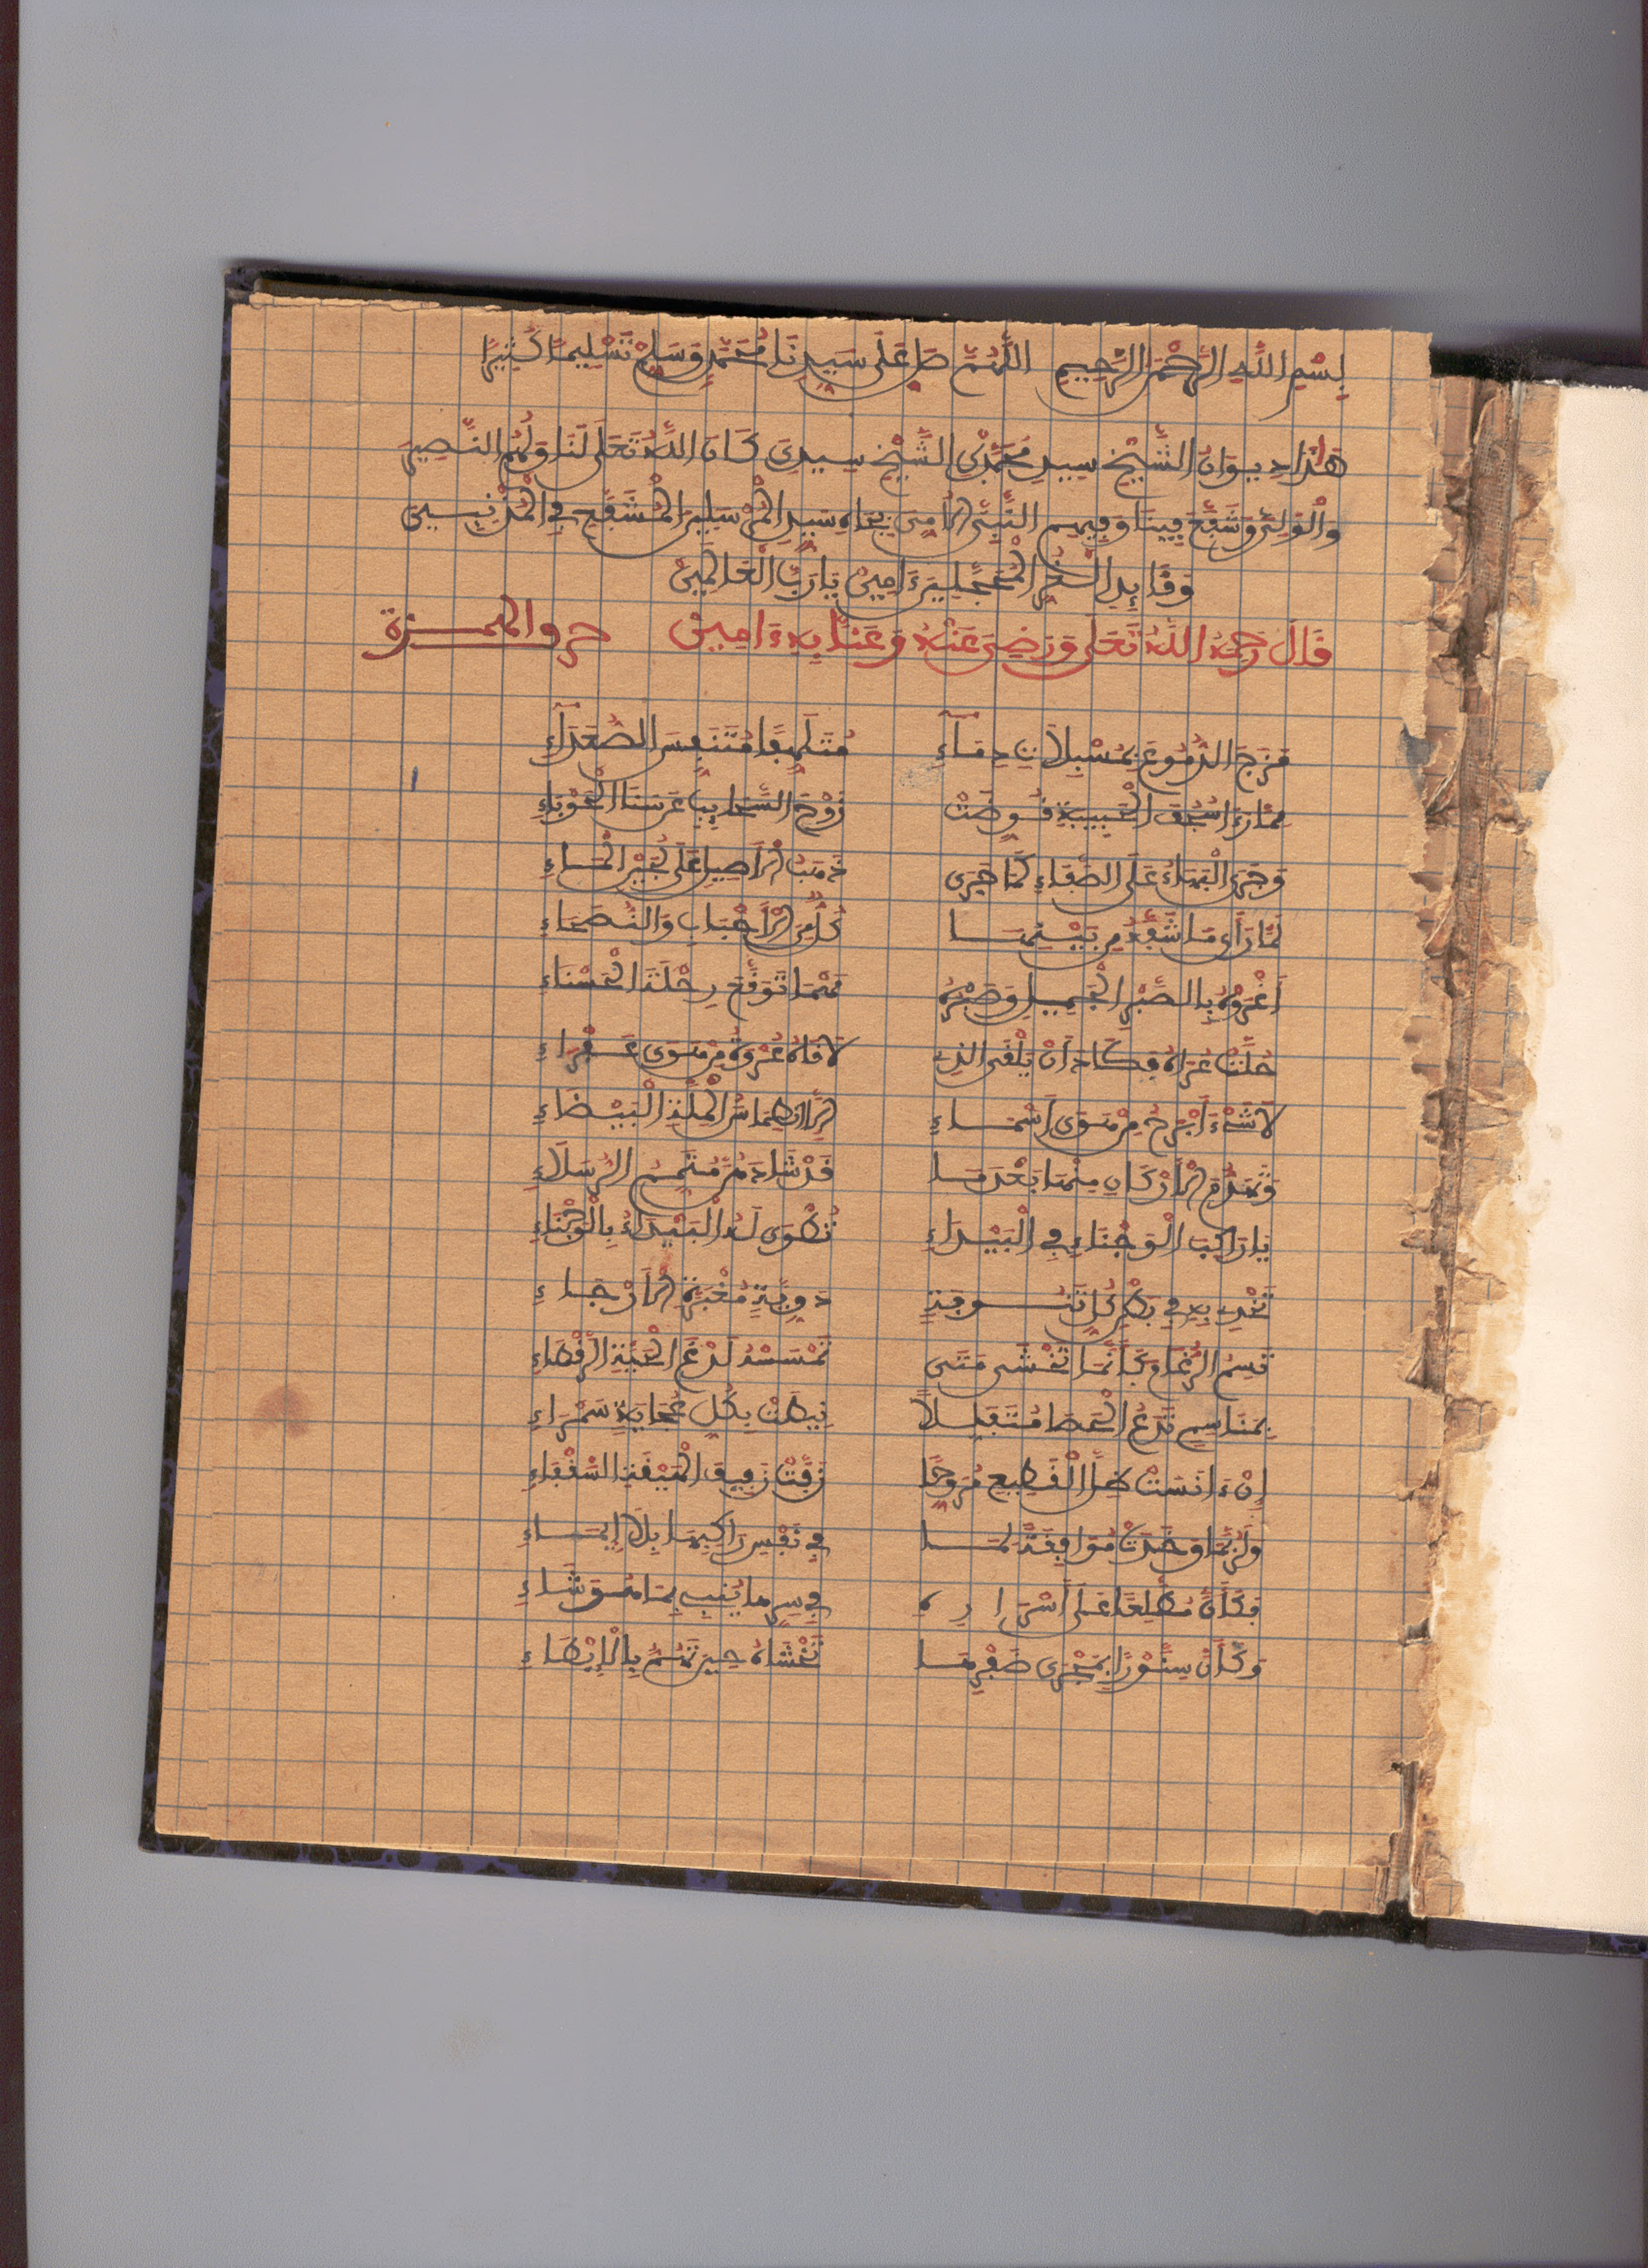 بِسْمِ اللَّهِ الرَّحْمَنِ الرَّحِيمِ اللَّهُمَّ صَلِّ عَلَى سَيِّدِنَا مُحَمَّدٍ وَسَلِّمْ تَسْلِيمًا كَثِيرًا
هَذَا دِيوَانُ الشَّيْخِ سِيدِ مُحَمَّدْ بْنِ الشَّيْخِ سِيدِيَ كَانَ اللَّهُ تَعَلَى لَنَا وَلَهُمُ النَّصِيرَ
وَالْوَلِيَّ وَشَفَّعَ فِينَا وَفِيهِمِ النَّبِيَّ الْأُمِّيَ بِجَاهِ سَيِّدِ الْمُرْسَلِينَ الْمُشَفَّعِ فِي الْمُذْنِبِينَ
وَقَائِدِ الْغُرِّ الْمُحَجَّلِينَ ءَامِينْ يَا رَبَّ الْعَالَمِينْ
قَالَ رَحِمَهُ اللَّهُ تَعَلَى وَرَضِيَ عَنْهُ وَعَنَّا بِهِ ءَامِينْ حرف الهمزة
مَزَجَ الدُّمُوعَ بِمُسْبِلَاتِ دِمَآءِ مُتَلَهِّفًا مُتَنَفِّسَ الصُّعَدَآءِ
لَمَّا رَءَا سُجُفَ الْحَبِيبَةِ قُوِّضَتْ زَوْحَ السَّحَائِبِ عَن سَنَا الْحَوْبَاءِ
وَجَرَى الْبَهَاءُ عَلَى الصَّفَاءِ كَمَا جَرَى ذَهَبُ الْأَصِيلِ عَلَى لُجَيْنِ الْمَاءِ
لَمَّا رَأَى مَا شَفَّهُ مِن بَيْنِهَا كُلٌّ مِنَ الْأَحْبَابِ وَالنُّصَحَاءِ
أَغْرَوْهُ بِالصَّبْرِ الْجَمِيلِ وَصَبْرُهُ مَهْمَا تَوَقَّعَ رِحْلَةَ الْحَسْنَاءِ
حُلَّتْ عُرَاهُ فَكَادَ أَنْ يَلْقَى الذِي لَاقَاهُ عُرْوَةُ مِنْ هَوَى عَفْرَاءِ
لَا شَيْءَ أَبْرَحُ مِنْ هَوَى أَسْمَاءِ إِلَّا انْطِمَاسُ الْمِلَّةِ الْبَيْضَاءِ
وَتَهَدُّمُ الْأَرْكَانِ مِنْهَا بَعْدَمَا قَدْ شَادَهُنَّ مُتَمِّمُ الرُّسَلَاءِ
يَا رَاكِبَ الْوَجْنَاءِ فِي الْبَيْدَاءِ تُطْوَى لَهُ الْبَيْدَاءُ بِالْوَجْنَاءِ
تَخْدِي بِهِ فِي بَطْنِ كُلِّ تَنُوفَةٍ دَوِّيَّةٍ مُغْبَرَّةِ الْأَرْجَاءِ
تَسِمُ الرُّغَا وَكَأَنَّمَا تَخْشَى مَتَى تَمْسَسْهُ لَدْغَ الْحَيَّةِ الرَّقْطَاءِ
بِمَنَاسِمٍ تَدَعُ الْحَصَا مُتَفَلِّلًا نِيطَتْ بِكُلِّ عُجَايَةٍ سَمْرَاءِ
إِنْ ءَانَسَتْ ظِلَّ الْقَطِيعِ مُرَوَّحًا زَفَّتْ زَفِيفَ الْهَيْقَةِ السَّقْفَاءِ
وَلَرُبَّمَا وَخَدَتْ مُوَافِقَةً لِمَا فِي نَفْسِ رَاكِبِهَا بِلَا إِيمَاءِ
فَكَأَنَّ مُطَّلِعًا عَلَى أَسْرَارِهِ فِي سِرِّهَا يُنْبِي بِمَا هُوَ شَاءِ
وَكَأَنَّ سِنَّوْرًا بِمَجْرَى ضَفْرِهَا تَخْشَاهُ حِينَ تَهُمُّ بِالْإِبْطَاءِ